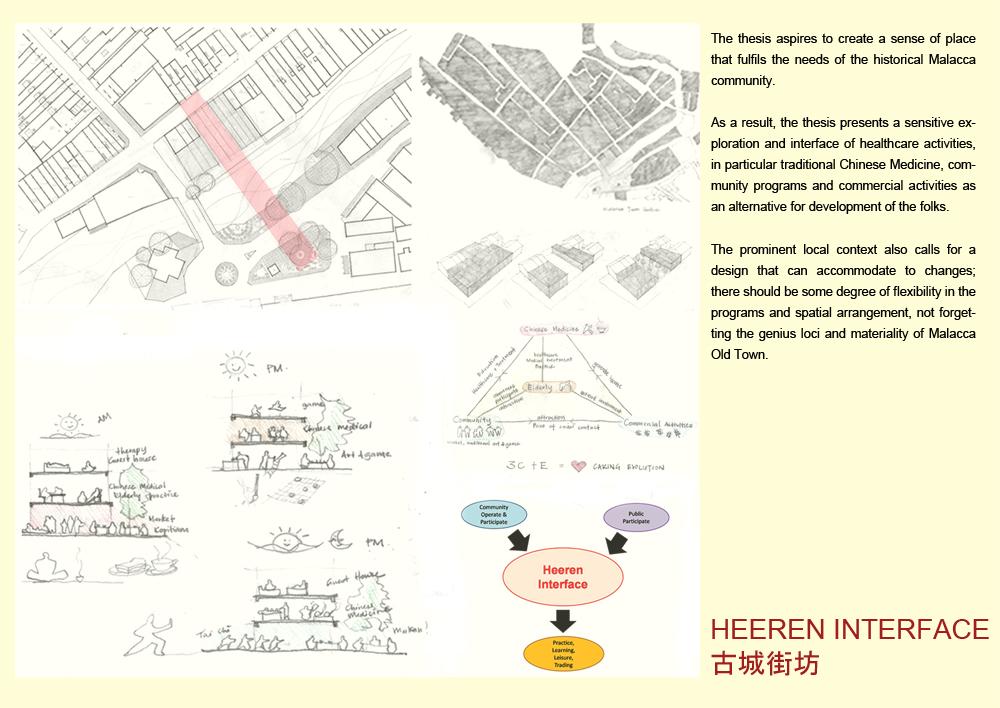 The thesis aspires to create a sense of place
that fulfils the needs of the historical Malacca
community.
As a result, the thesis presents a sensitive ex-
ploration and interface of healthcare activities,
in particular traditional Chinese Medicine, com-
munity programs and commercial activities as
an alternative for development of the folks.
The prominent local context also calls for a
design that can accommodate to changes;
there should be some degree of flexibility in the
programs and spatial arrangement, not forget-
ting the genius loci and materiality of Malacca
Old Town.
Chinese Medicine
Elderly
Community
attraction
Commercial Activities
Point of social contact
3C + E = CARING EVOLUTION
AM
therapy
Guest house
Chinese Medical
Elderly practice
Market
Kopitiam
PM.
games
Chinese medical
Art & game
PM.
Guest House
Chinese
Medicine
Tai Chi
Makan!
Community
Operate &
Participate
Public
Participate
Heeren
Interface
Practice,
Learning,
Leisure,
Trading
HEEREN INTERFACE
古城街坊